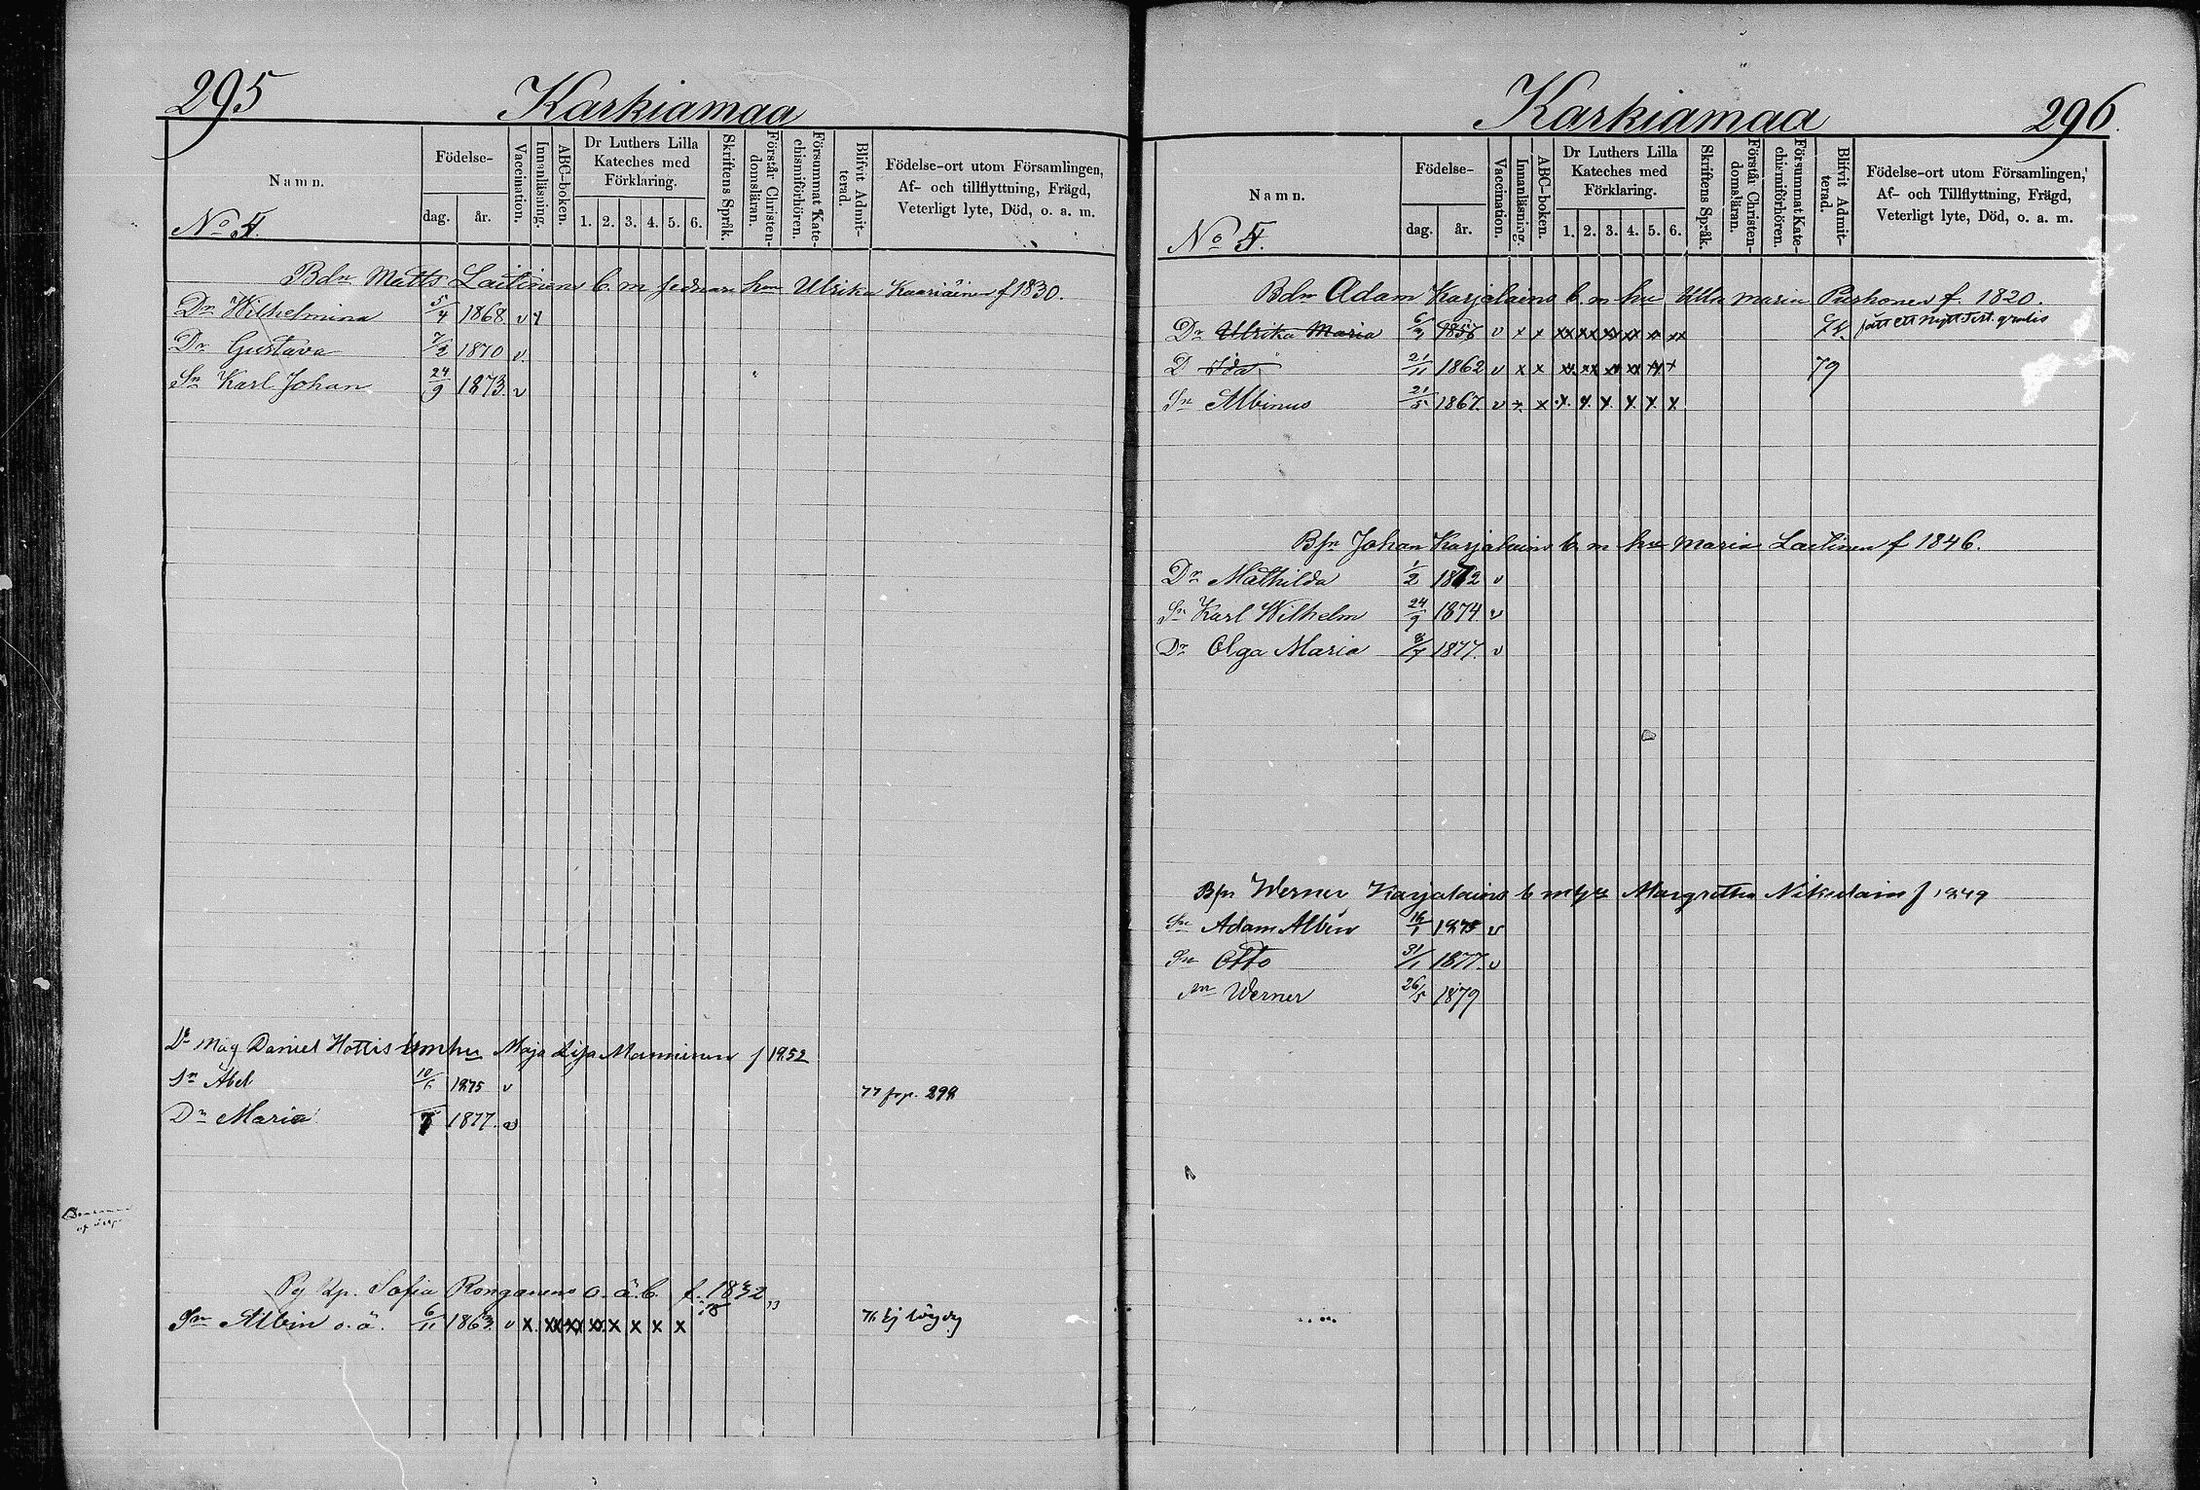 295 Karkiamaa
Namn. Födelse- dag. år. Vaccination. Innanläsning. ABC-boken. Dr Luthers Lilla Kateches med Förklaring. 1. 2. 3. 4. 5. 6. Skriftens Språk. Förstår Christen-domsläran. Försummat Kate-chismiförhören. Blifvit Admit-terad. Födelse-ort utom Församlingen, Af- och tillflyttning, Frägd, Veterligt lyte, Död, o. a. m.
No 4.
Bdn Matts Laitinens b. m hu Ulrika Kaariäinen f 1830.
Dr Wilhelmina 5/4 1868 v x
Dr Gustava 7/2 1870 v.
Sn Karl Johan 24/9 1873. v
Dr Måg Daniel Hottis b m hu Maja Lisa Manninen f 1852
Sn Abel 10/6 1875 v 77 frp. 298
Dr Maria 1877. v
Pig Sofia Ronganens o. ä. b. f. 1832
Sn Albin o. ä. 6/11 1863. v x. xx xx xx. x x x x 76 Ej
Karkiamaa 296.
Namn. Födelse- dag. år. Vaccination. Innanläsning. ABC-boken. Dr Luthers Lilla Kateches med Förklaring. 1. 2. 3. 4. 5. 6. Skriftens Språk. Förstår Christen-domsläran. Försummat Kate-chismiförhören. Blifvit Admit-terad. Födelse-ort utom Församlingen, Af- och Tillflyttning, Frägd, Veterligt lyte, Död, o. a. m.
No 5.
Bdn Adam Karjalains b. m hu Ulla Maria Purhonen f. 1820.
Dr Ulrika Maria 6/3 1856 v x x xx xx xx xx x xx fått ett nytt Test. gratis
D Ida 21/11 1862 v x x xx. xx xx xx xx x 79
Sn Albinus 21/5 1867. v x. x x. x. x. x. x. x.
Bfn Johan Karjalains b. m hu Maria Laitinen f 1846.
Dr Mathilda 1/2 1872 v
Sn Karl Wilhelm 24/9 1874 v
Dr Olga Maria 8/7 1877. v
Bfn Werner Karjalains b m hu Margretha Nikulain f 1849
Sn Adam Albin 16/1 1875 v
Sn Otto 31/1 1877. v
Sn Werner 26/5 1879